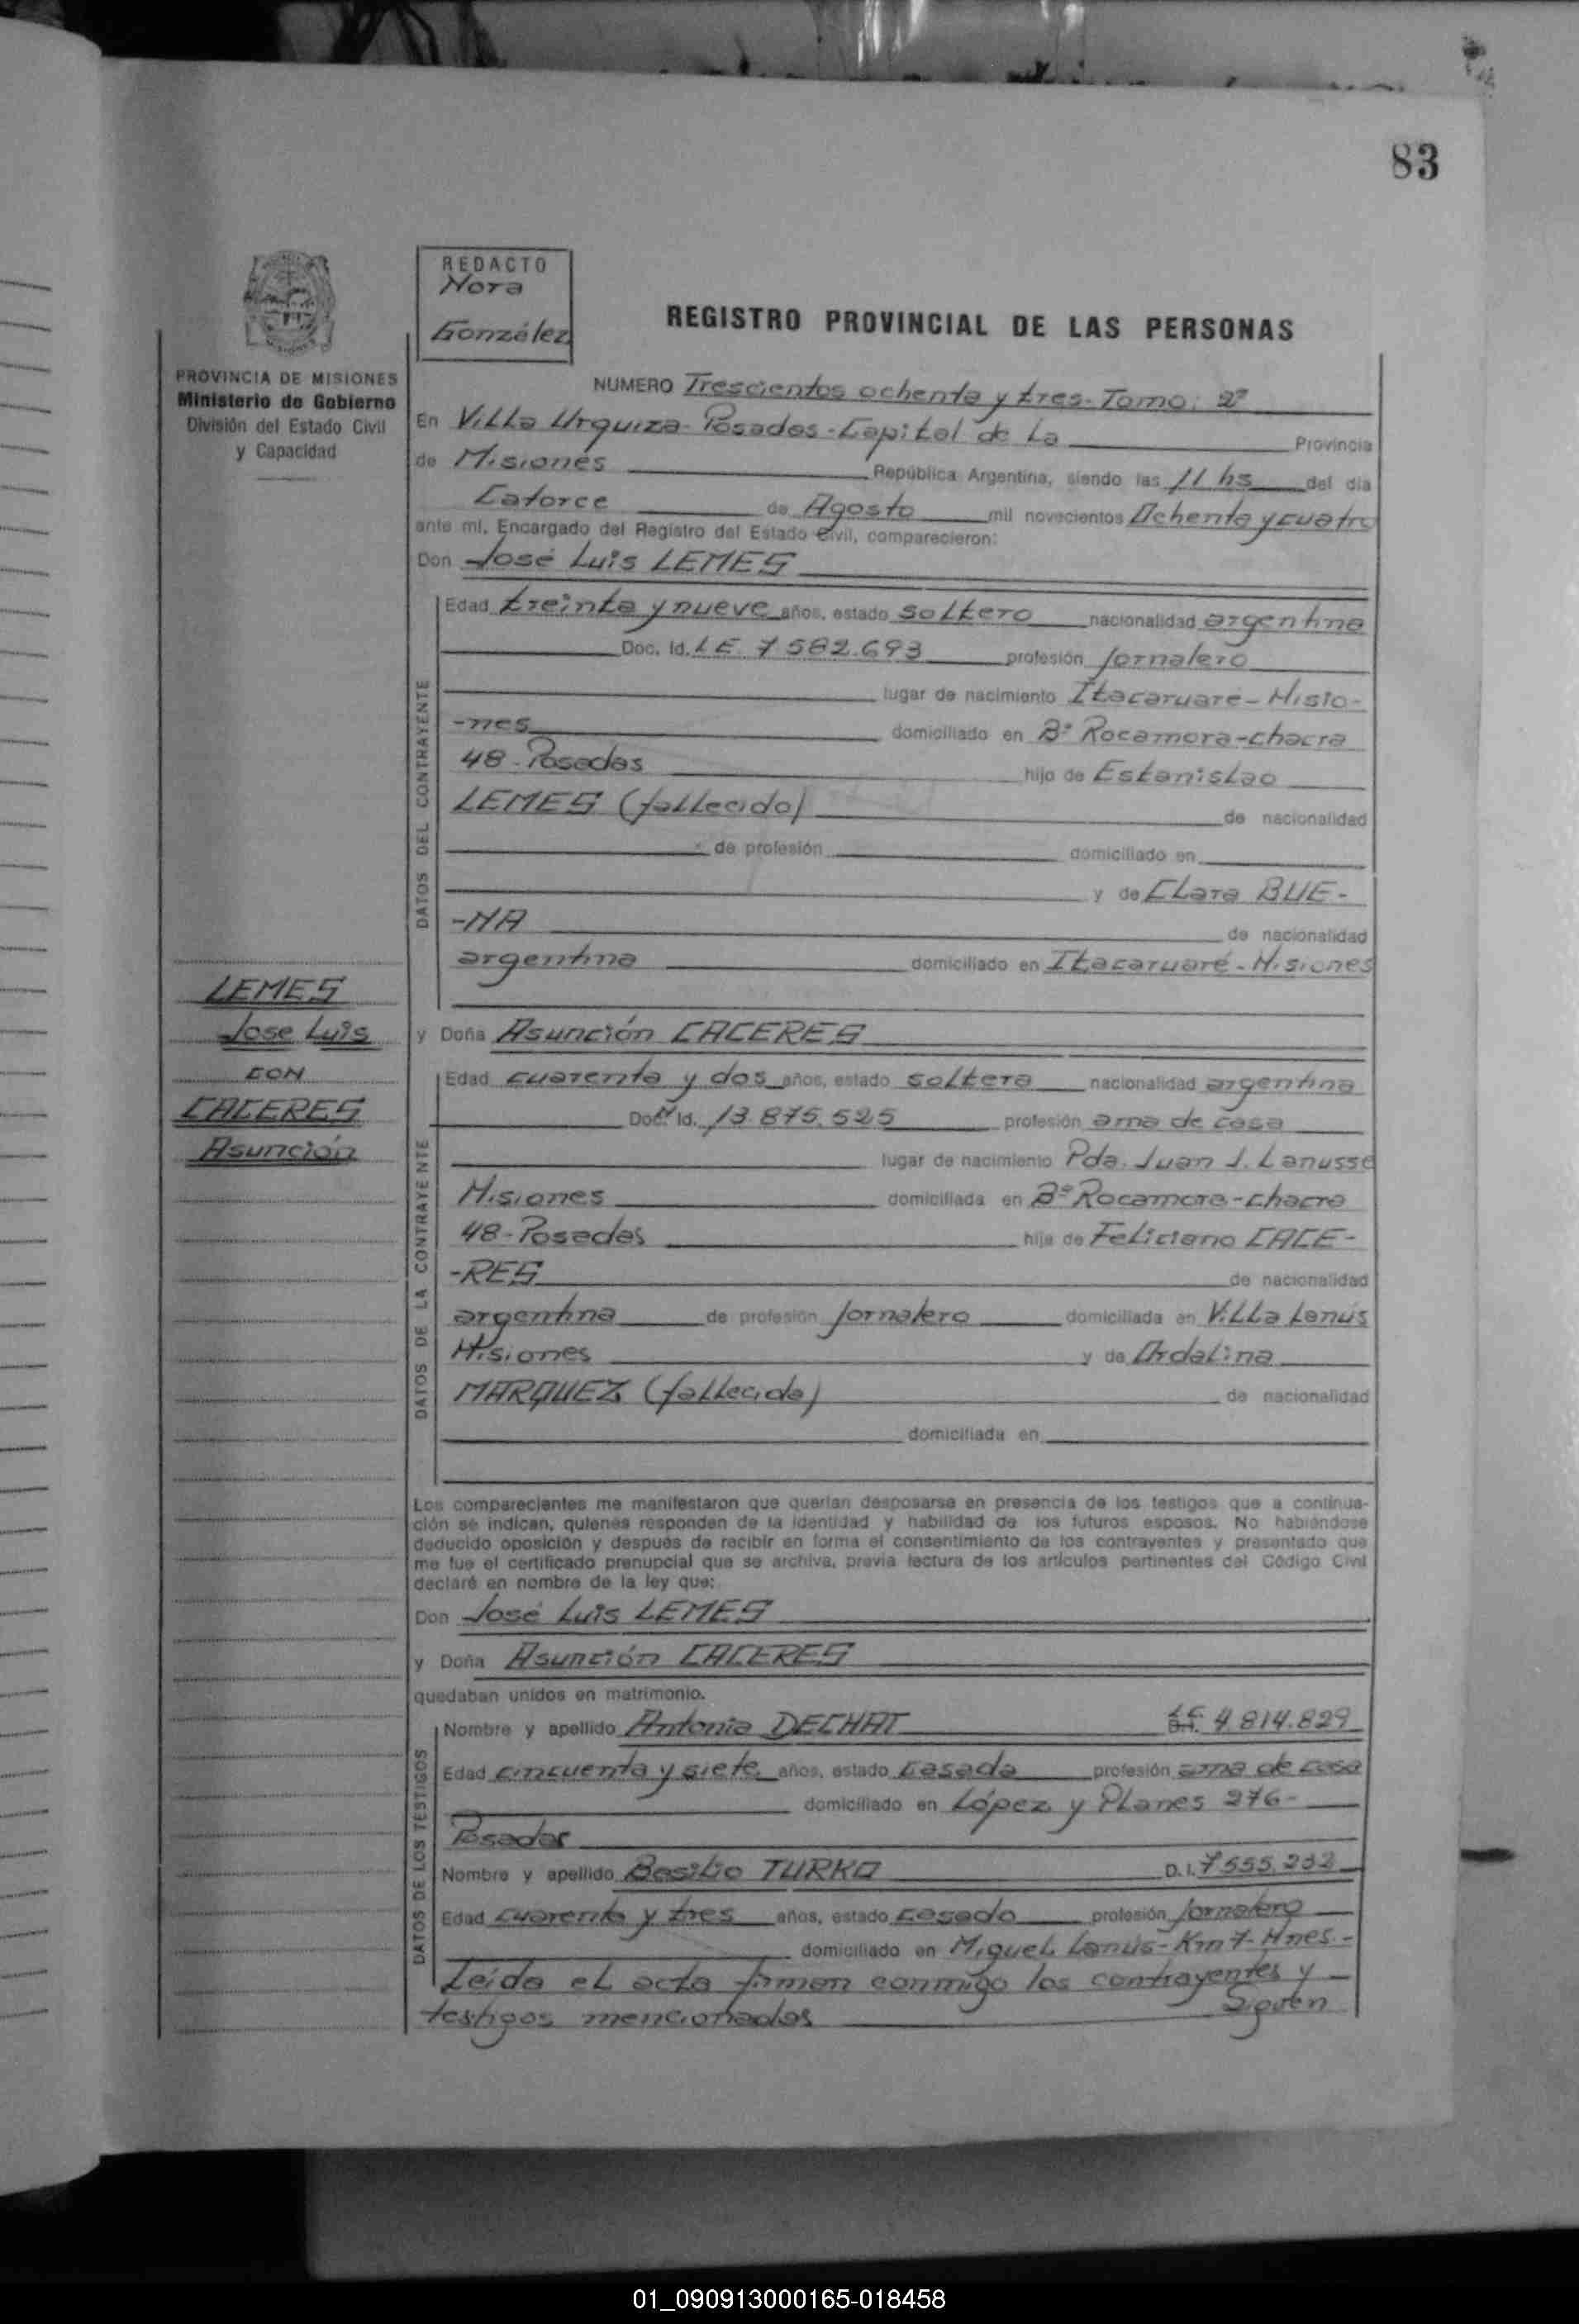 83
REDACTO
Nora
González
REGISTRO PROVINCIAL DE LAS PERSONAS
PROVINCIA DE MISIONES
Ministerio de Gobierno
División del Estado Civil
y Capacidad
NUMERO Trescientos ochenta y tres. Tomo: 2º
En Villa Urquiza - Posadas - Capital de la Provincia
de Misiones República Argentina, siendo las 11 hs del día
Catorce de Agosto mil novecientos Ochenta y cuatro
ante mí, Encargado del Registro del Estado Civil, comparecieron:
Don José Luis LEMES
DATOS DEL CONTRAYENTE
Edad treinta y nueve años, estado soltero nacionalidad argentina
Doc. Id. LE 7582.693 profesión jornalero
lugar de nacimiento Itacaruaré - Misio-
-nes domiciliado en Bº Rocamora - chacra
48 - Posadas hijo de Estanislao
LEMES (fallecido) de nacionalidad
de profesión domiciliado en
y de Clara BUE-
-NA de nacionalidad
argentina domiciliado en Itacaruaré - Misiones
LEMES
Jose Luis
CON
CACERES
Asunción
y Doña Asunción CACERES
DATOS DE LA CONTRAYENTE
Edad cuarenta y dos años, estado soltera nacionalidad argentina
Doc. Id. 13.875.525 profesión ama de casa
lugar de nacimiento Pda. Juan J. Lanusse
Misiones domiciliada en Bº Rocamora - chacra
48 - Posadas hija de Feliciano CACE-
-RES de nacionalidad
argentina de profesión jornalero domiciliada en Villa Lanús
Misiones y de Ordalina
MARQUEZ (fallecida) de nacionalidad
domiciliada en
Los comparecientes me manifestaron que querían desposarse en presencia de los testigos que a continua-
ción se indican, quienes responden de la identidad y habilidad de los futuros esposos. No habiéndose
deducido oposición y después de recibir en forma el consentimiento de los contrayentes y presentado que
me fue el certificado prenupcial que se archiva, previa lectura de los artículos pertinentes del Código Civil
declaré en nombre de la ley que:
Don José Luis LEMES
y Doña Asunción CACERES
quedaban unidos en matrimonio.
DATOS DE LOS TESTIGOS
Nombre y apellido Antonia DECHAT LC 4.814.829
Edad cincuenta y siete años, estado casada profesión ama de casa
domiciliado en López y Planes 276-
Posadas
Nombre y apellido Basilio TURKO D.I. 7555.232
Edad cuarenta y tres años, estado casado profesión jornalero
domiciliado en Miguel Lanús - Km 7 - Mnes.-
Leída el acta firman conmigo los contrayentes y
testigos mencionados Siguen
01_090913000165-018458